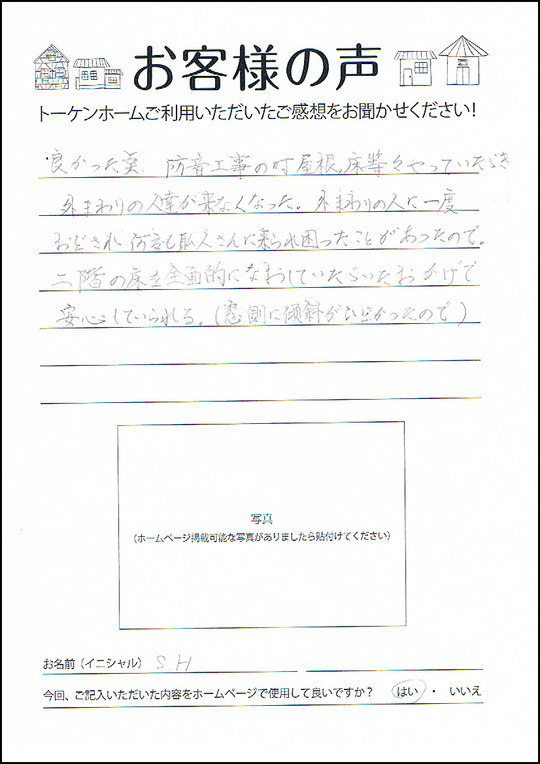 お客様の声
トーケンホームご利用いただいたご感想をお聞かせください!
良かった英、防音工事の時屋根、床等をやっていただき
外まわりの人達が来なくなった。外まわりの人に一度
おどされ何度も職人さんに来られ困ったことがあったので。
二階の床を全面的になおしていただいたおかげで
安心していられる。(窓側に傾斜がひどかったので)
写真
(ホームページ掲載可能な写真がありましたら貼付けてください)
お名前(イニシャル) S.H
今回、ご記入いただいた内容をホームページで使用して良いですか? はい ・ いいえ